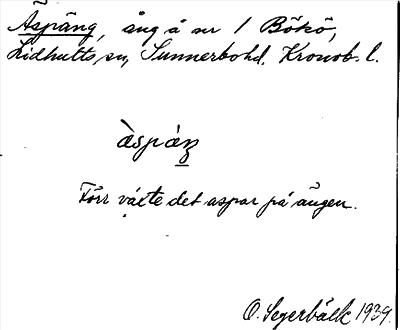 Äspäng, äng å nr 1 Bökö,
Lidhults sn, Sunnerbo hd. Kronob. l.
àspáŋ
Förr växte det aspar på ängen.
O. Segerbäck 1939.